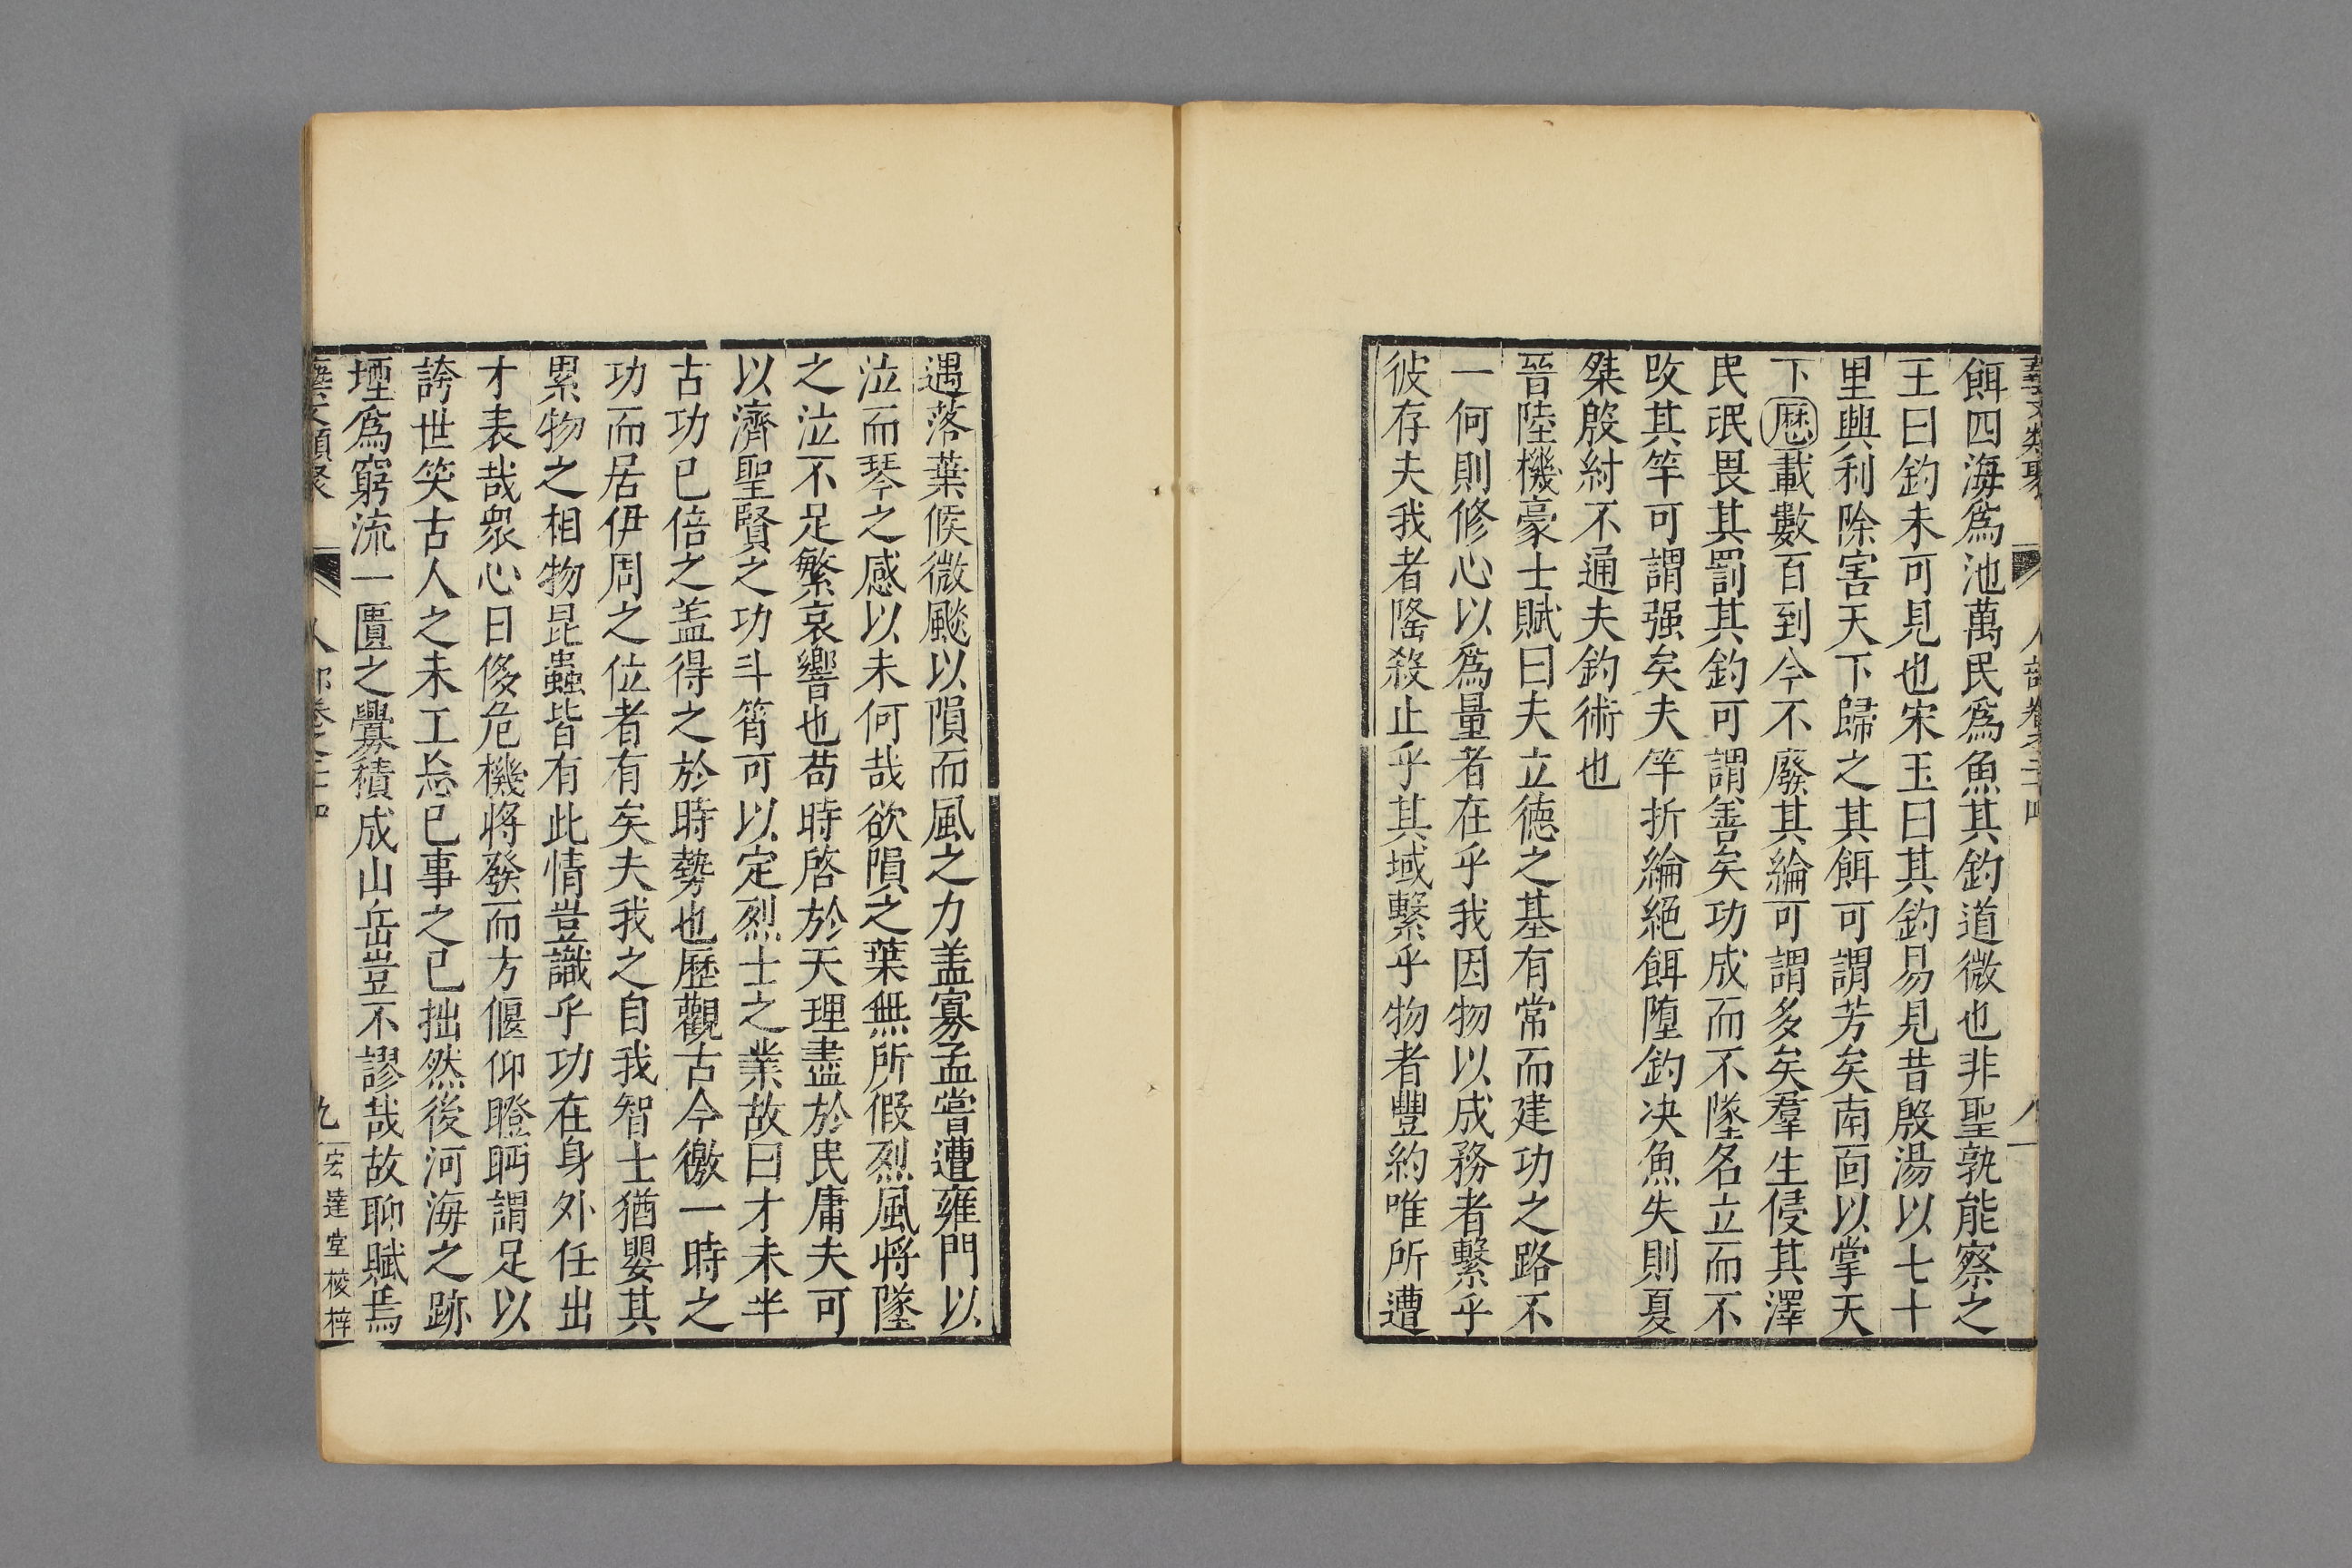 藝文類聚 人部卷之二十四 八
餌四海爲池萬民爲魚其釣道微也非聖孰能察之
王曰釣未可見也宋玉曰其釣易見昔殷湯以七十
里興利除害天下歸之其餌可謂芳矣南面以掌天
下歷載數百到今不廢其綸可謂多矣羣生侵其澤
民氓畏其罰其釣可謂善矣功成而不墜名立而不
改其竿可謂强矣夫竿折綸絕餌墮釣决魚失則夏
桀殷紂不通夫釣術也
晉陸機豪士賦曰夫立德之基有常而建功之路不
一何則修心以爲量者在乎我因物以成務者繫乎
彼存夫我者隆殺止乎其域繫乎物者豐約唯所遭
遇落葉候微飈以隕而風之力盖寡孟嘗遭雍門以
泣而琴之感以未何哉欲隕之葉無所假烈風將墜
之泣不足繁哀響也苟時啓於天理盡於民庸夫可
以濟聖賢之功斗筲可以定烈士之業故曰才未半
古功已倍之盖得之於時勢也歷觀古今徼一時之
功而居伊周之位者有矣夫我之自我智士猶嬰其
累物之相物昆蟲皆有此情豈識乎功在身外任出
才表哉衆心日侈危機將發而方偃仰瞪眄謂足以
誇世笑古人之未工忘已事之已拙然後河海之跡
堙爲窮流一匱之釁積成山岳豈不謬哉故聊賦焉
藝文類聚 人部卷之二十四 九 宏達堂校梓